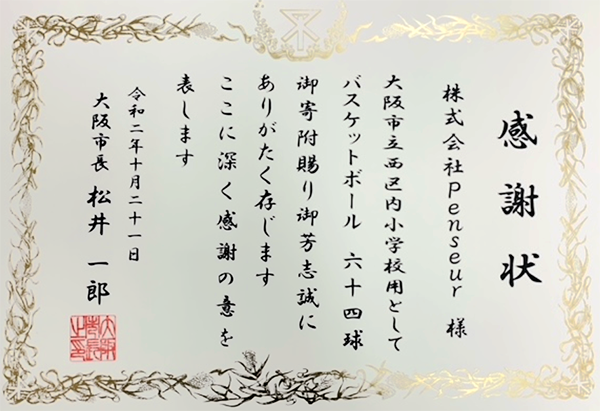 感謝状
株式会社penseur 様
大阪市立西区内小学校用として
バスケットボール 六十四球
御寄附賜り御芳志誠に
ありがたく存じます
ここに深く感謝の意を
表します
令和二年十月二十一日
大阪市長 松井 一郎
大阪市長之印